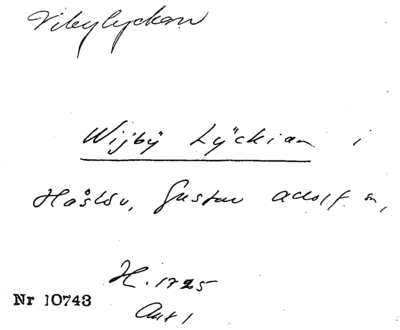 Vibylyckan
Wijbÿ Lÿckian i
Håslöv, Gustav Adolf sn,
H. 1725
Nr 10743
Akt 1